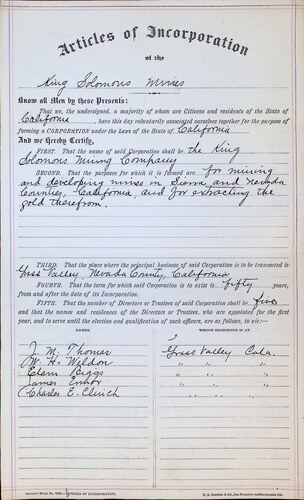 Articles of Incorporation
of the
King Solomons Mines
Know all Men by these Presents:
That we, the undersigned, a majority of whom are Citizens and residents of the State of
California, have this day voluntarily associated ourselves together for the purpose of
forming a CORPORATION under the Laws of the State of California
And we Hereby Certify,
FIRST. That the name of said Corporation shall be the King
Solomons Mining Company
SECOND. That the purposes for which it is formed are for mining
and developing mines in Sierra and Nevada
Counties, California, and for extracting the
gold therefrom.
THIRD. That the place where the principal business of said Corporation is to be transacted is
Grass Valley, Nevada County, California
FOURTH. That the term for which said Corporation is to exist is fifty years,
from and after the date of its Incorporation.
FIFTH. That the number of Directors or Trustees of said Corporation shall be five
and that the names and residences of the Directors or Trustees, who are appointed for the first
year, and to serve until the election and qualification of such officers, are as follows, to wit:
NAMES WHOSE RESIDENCE IS AT
J. M. Thomas Grass Valley Cala.
W. H. Weldon " " "
Edwin Biggs " " "
James " " "
Charles E. Clinch " " "